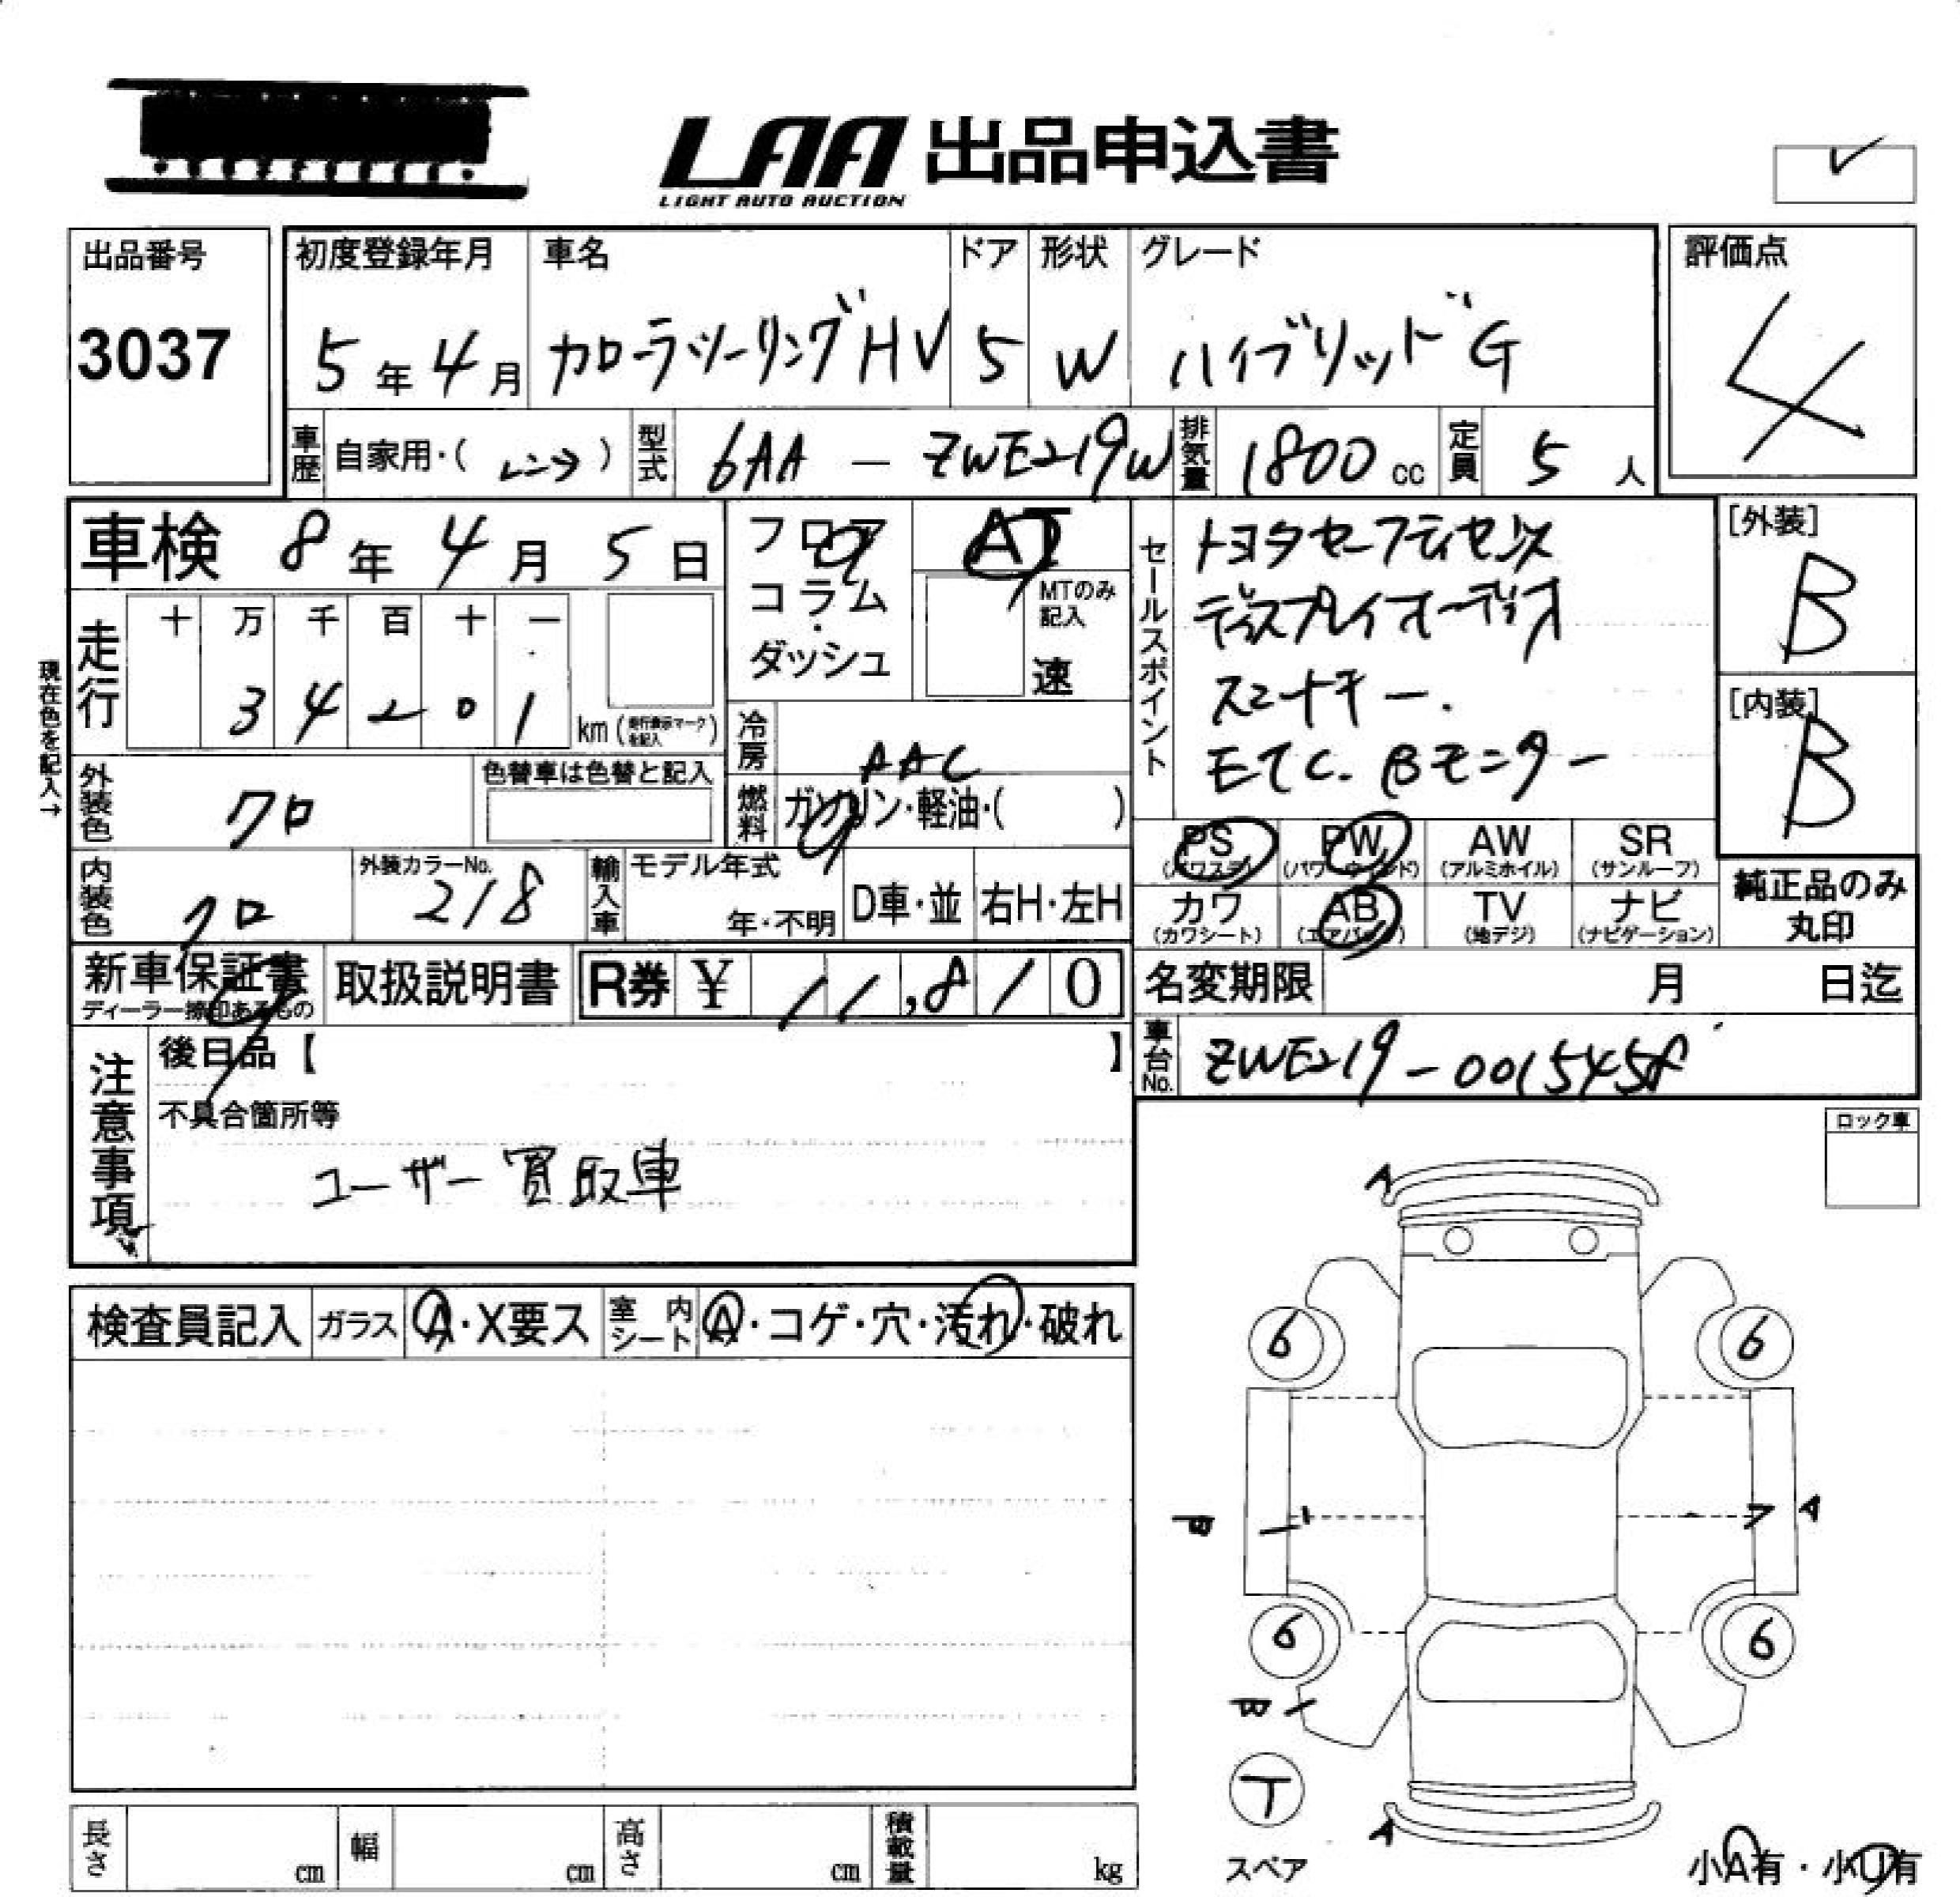 LAA 出品申込書
LIGHT AUTO AUCTION
出品番号
3037
初度登録年月
5年4月
車名
カローラツーリングHV
ドア
5
形状
W
グレード
ハイブリッドG
評価点
4
車歴 自家用・(レンタ)
型式 6AA - ZWE219W
排気量 1800cc
定員 5人
車検 8年4月5日
フロア
コラム
・
ダッシュ
AT
MTのみ
記入
速
セールスポイント
トヨタセーフティセンス
ディスプレイオーディオ
スマートキー.
ETC. Bモニター
[外装]
B
[内装]
B
現在色を記入→
走行
十 万 千 百 十 一
3 4 2 0 1 km (走行表示マークを記入)
冷房 AAC
燃料 ガソリン・軽油・( )
外装色 クロ
色替車は色替と記入
内装色 クロ
外装カラーNo.
218
輸入車
モデル年式
年・不明
D車・並
右H・左H
PS
(パワステ)
PW
(パワーウィンド)
AW
(アルミホイル)
SR
(サンルーフ)
カワ
(カワシート)
AB
(エアバッグ)
TV
(地デジ)
ナビ
(ナビゲーション)
純正品のみ
丸印
新車保証書
ディーラー捺印あるもの
取扱説明書
R券 ¥ 11,810
名変期限 月 日迄
車台No. ZWE219-0015458
注意事項
後日品【 】
不具合箇所等
ユーザー買取車
ロック車
検査員記入
ガラス A・X要ス
室内シート A・コゲ・穴・汚れ・破れ
A
6 6
A
6 6
T
スペア
A
小A有・小U有
長さ cm
幅 cm
高さ cm
積載量 kg